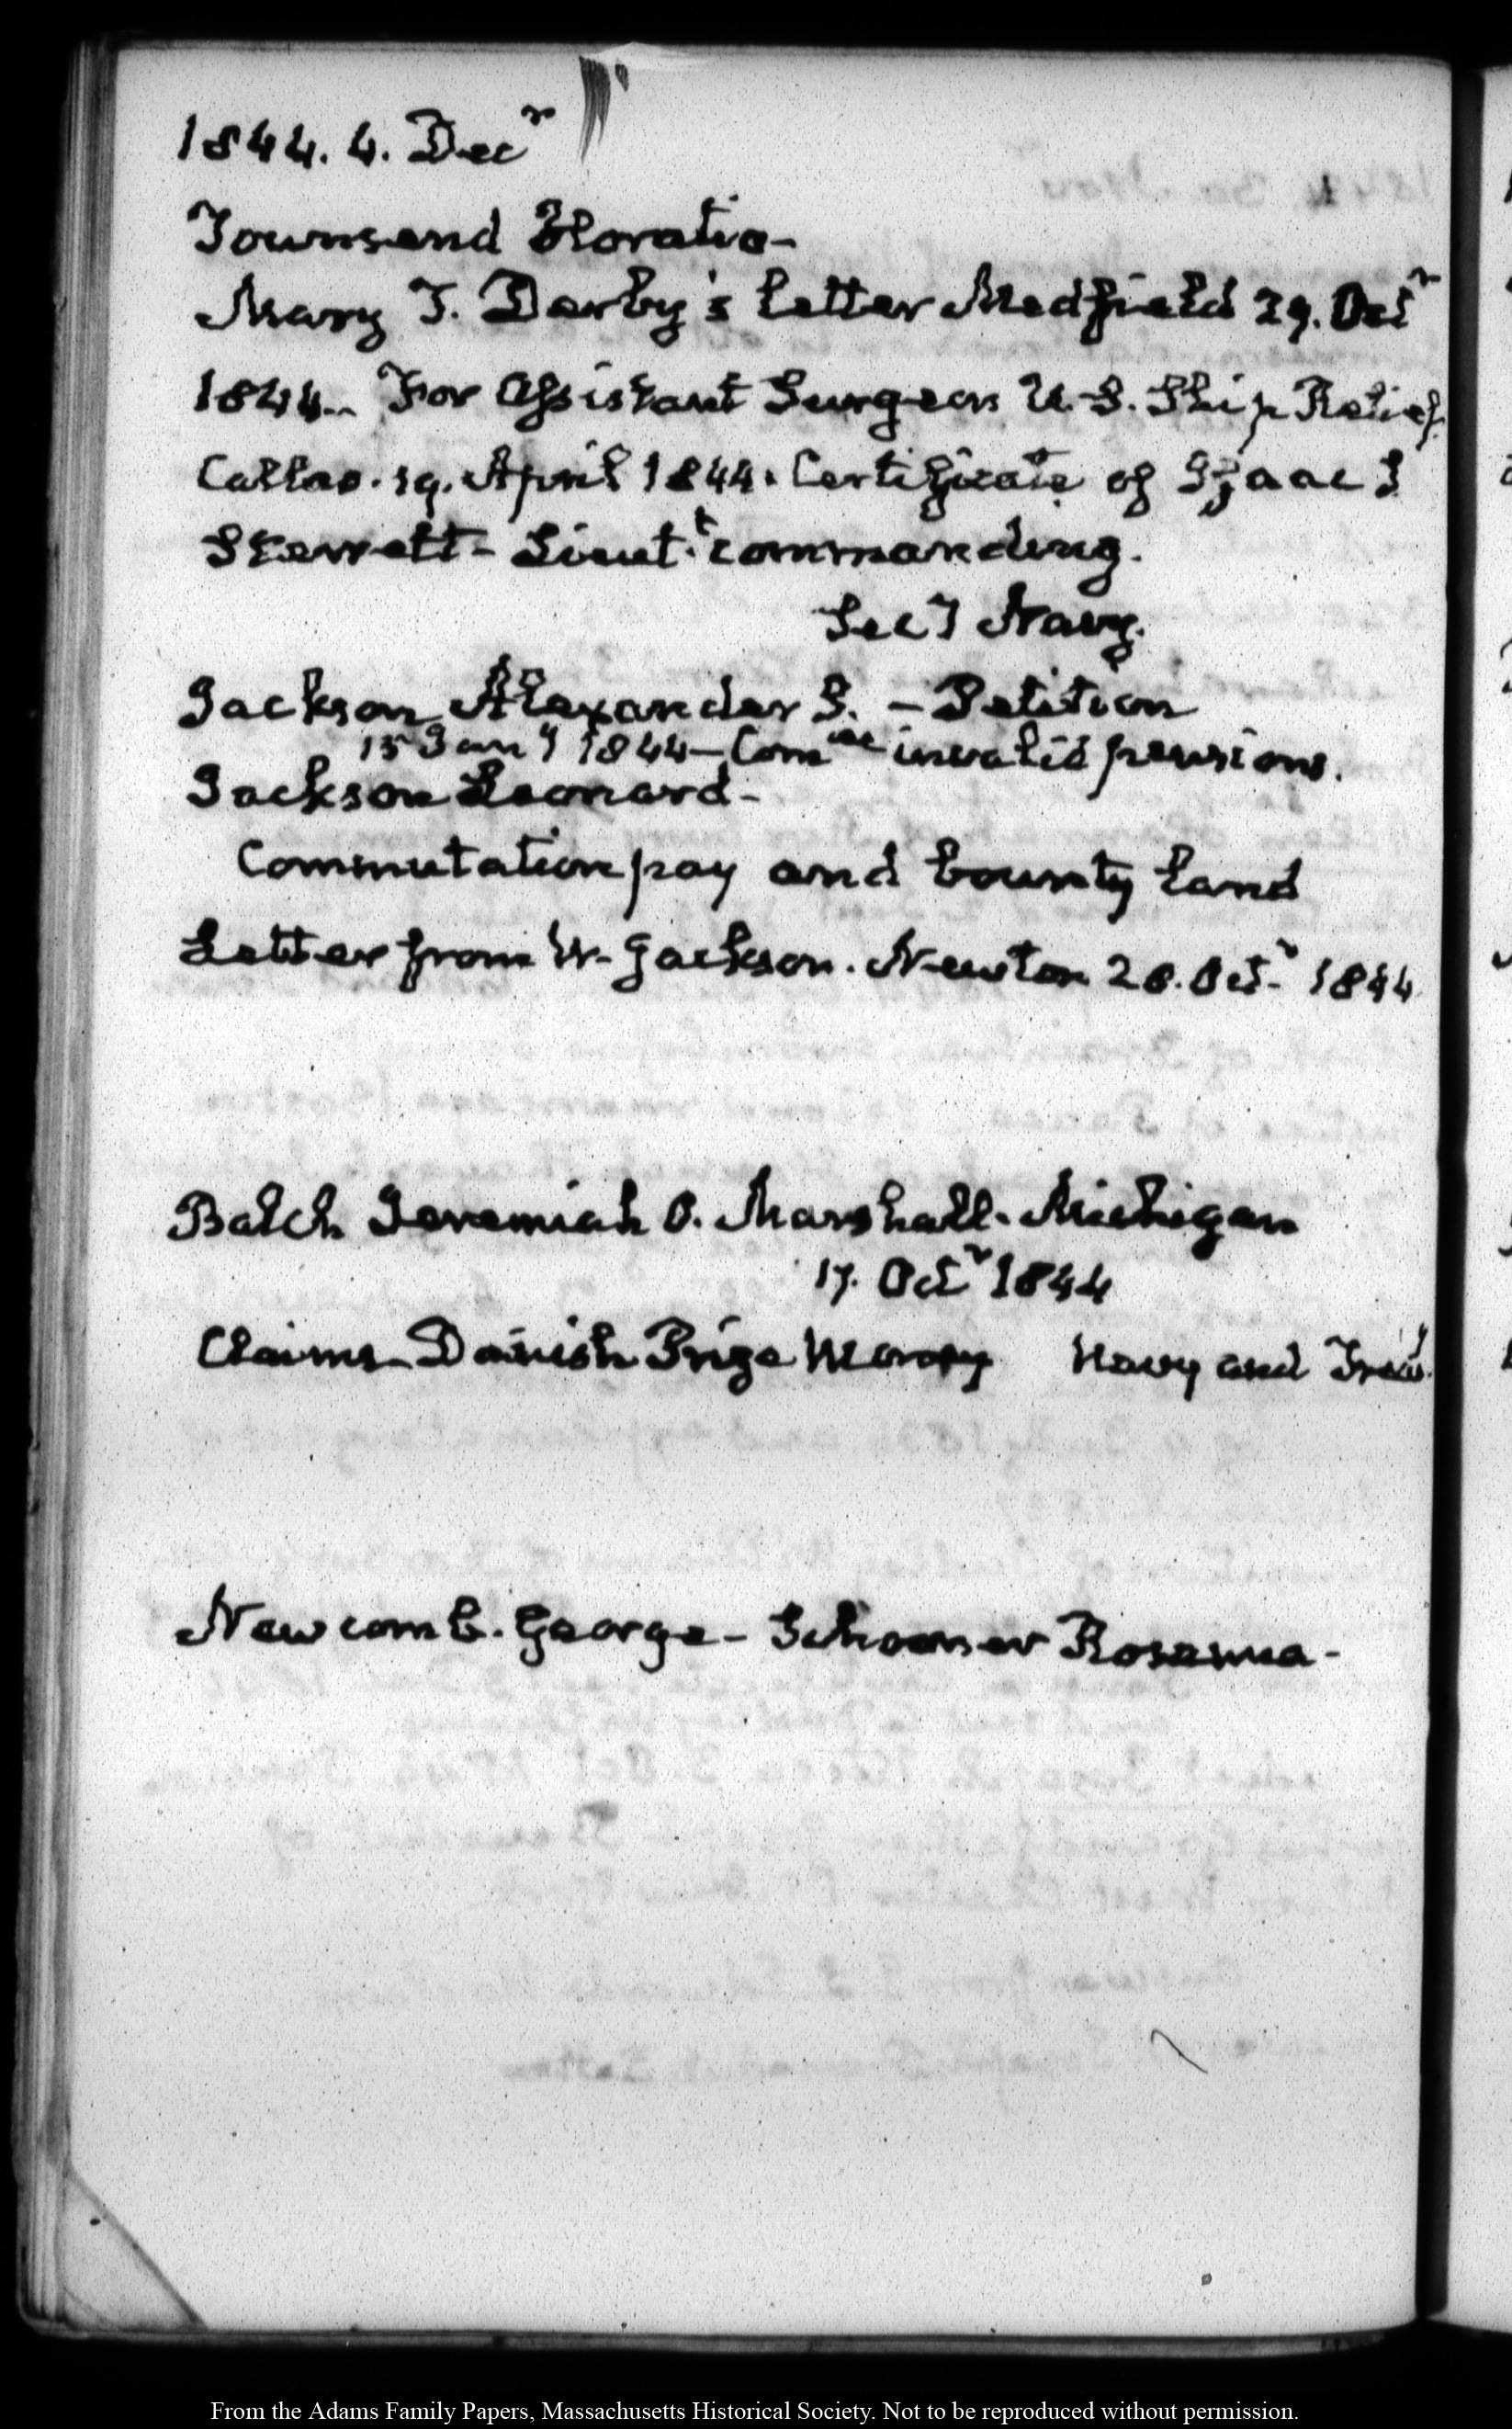 1844. 4. Decr
Townsend Horatio-
Mary T. Derby's letter Medfield 29. Octr
1844.. For Assistant Surgeon U.S. Ship Relief
Callao. 19. April 1844. Certificate of Isaac S
Sterrett- Lieut.t commanding.
Secy Navy.
Jackson Alexander S. - Petition
15 Jany 1844- Comee invalid pensions.
Jackson Leonard-
Commutation pay and bounty land
Letter from W. Jackson. Newton 28. Octr 1844
Balch Jeremiah O. Marshall. Michigan
17. Octr 1844
Claims Danish Prize Money Navy and Treasy.
Newcomb. George- Schooner Rosanna-
From the Adams Family Papers, Massachusetts Historical Society. Not to be reproduced without permission.